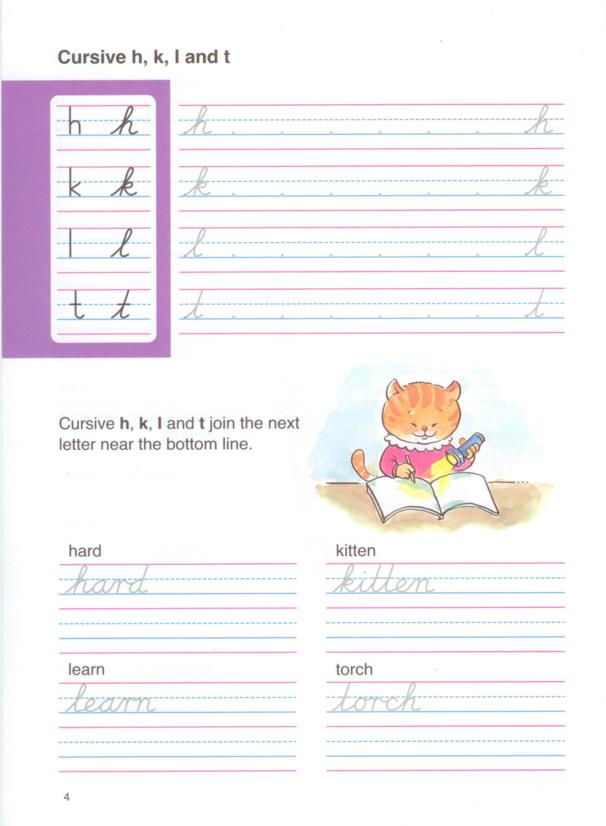 Cursive h, k, l and t
h h h h
k k k k
l l l l
t t t t
Cursive h, k, l and t join the next
letter near the bottom line.
hard kitten
hard kitten
learn torch
learn torch
4